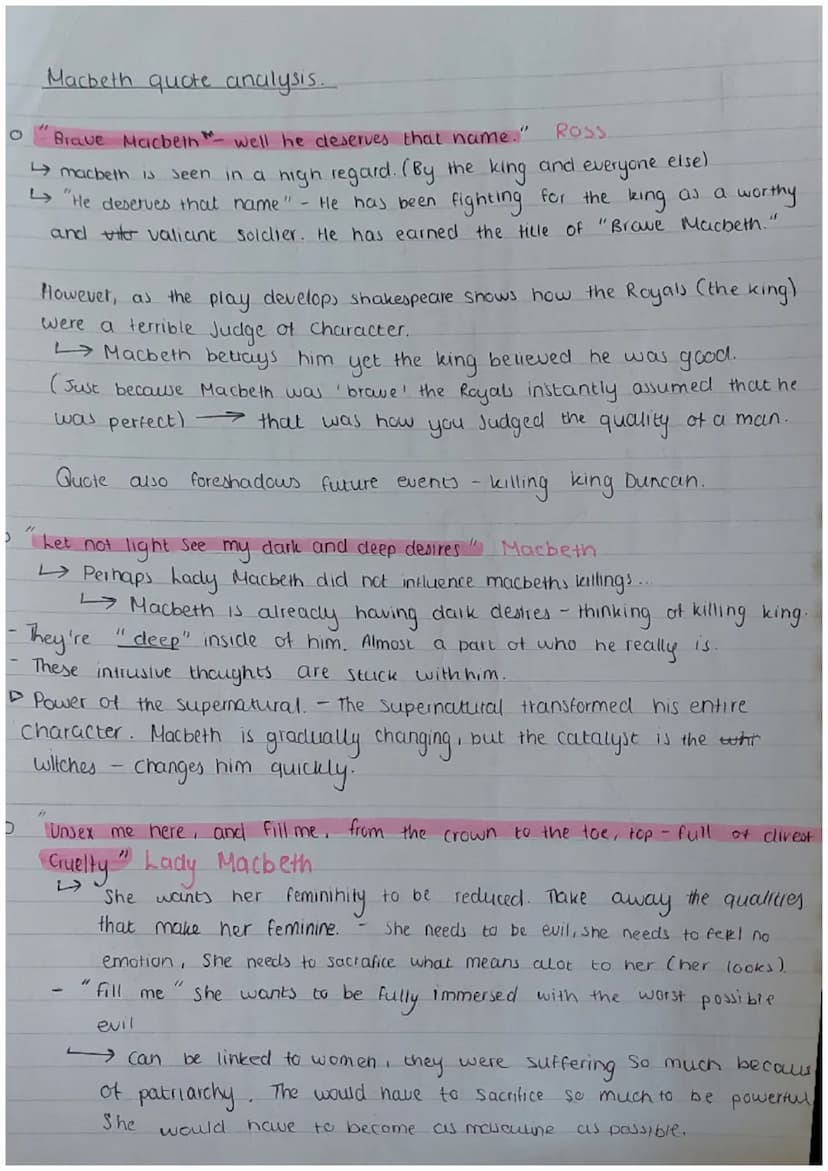 Macbeth quote analysis.
"Brave Macbeth" - well he deserves that name." Ross
↳ macbeth is seen in a high regard. (By the king and everyone else)
↳ "He deserves that name" - He has been fighting for the king as a worthy
and valiant soldier. He has earned the title of "Brave Macbeth."
However, as the play develops shakespeare shows how the Royals (the king)
were a terrible Judge of character.
↳ Macbeth betrays him yet the king believed he was good.
(Just because Macbeth was 'brave' the Royals instantly assumed that he
was perfect) → that was how you Judged the quality of a man.
Quote also foreshadows future events - killing king Duncan.
"Let not light see my dark and deep desires" Macbeth
↳ Perhaps Lady Macbeth did not influence macbeths killings...
↳ Macbeth is already having dark desires - thinking of killing king.
- They're "deep" inside of him. Almost a part of who he really is.
- These intrusive thoughts are stuck with him.
▷ Power of the supernatural. - The supernatural transformed his entire
character. Macbeth is gradually changing, but the catalyst is the
witches - changes him quickly.
"Unsex me here, and fill me, from the crown to the toe, top - full of direst
Cruelty" Lady Macbeth
↳ She wants her femininity to be reduced. Take away the qualities
that make her feminine. - She needs to be evil, she needs to feel no
emotion, She needs to sacrafice what means alot to her (her looks)
- "fill me" she wants to be fully immersed with the worst possible
evil
→ can be linked to women, they were suffering so much becaus
of patriarchy. The would have to sacrifice so much to be powerful
She would have to become as masculine as possible.